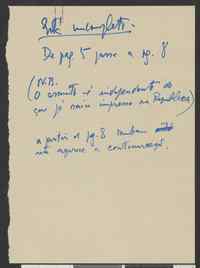 Está incompleto.
De pag. 5 passa a pg. 8
(N.B.
O assunto é independente do
que já saiu impresso na República)
a partir de pg. 8 tambem
não aparece a continuação.